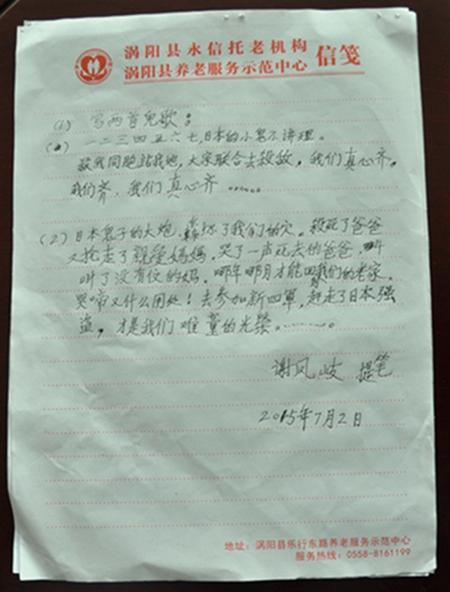 涡阳县永信托老机构
涡阳县养老服务示范中心 信笺
(1) 写两首儿歌:
一二三四五六七,日本的小鬼不讲理。
杀我同胞 我地,大家联合去杀敌,我们真心齐,
我们齐,我们真心齐……
(2) 日本鬼子的大炮,轰坏了我们的穴。杀死了爸爸
又抢走了亲爱妈妈,哭了一声死去的爸爸,叫
叫了没有位的妈。哪年哪月才能回我们的老家。
哭啼又什么用处!去参加新四军,赶走了日本强
盗,才是我们难童的光荣………。
谢凤岐 提笔
2015年7月2日
地址:涡阳县乐行东路养老服务示范中心
服务热线:0558-8161199